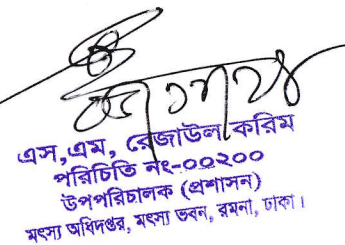 এস,এম, রেজাউল করিম
পরিচিতি নং-০০২০০
উপপরিচালক (প্রশাসন)
মৎস্য অধিদপ্তর, মৎস্য ভবন, রমনা, ঢাকা।